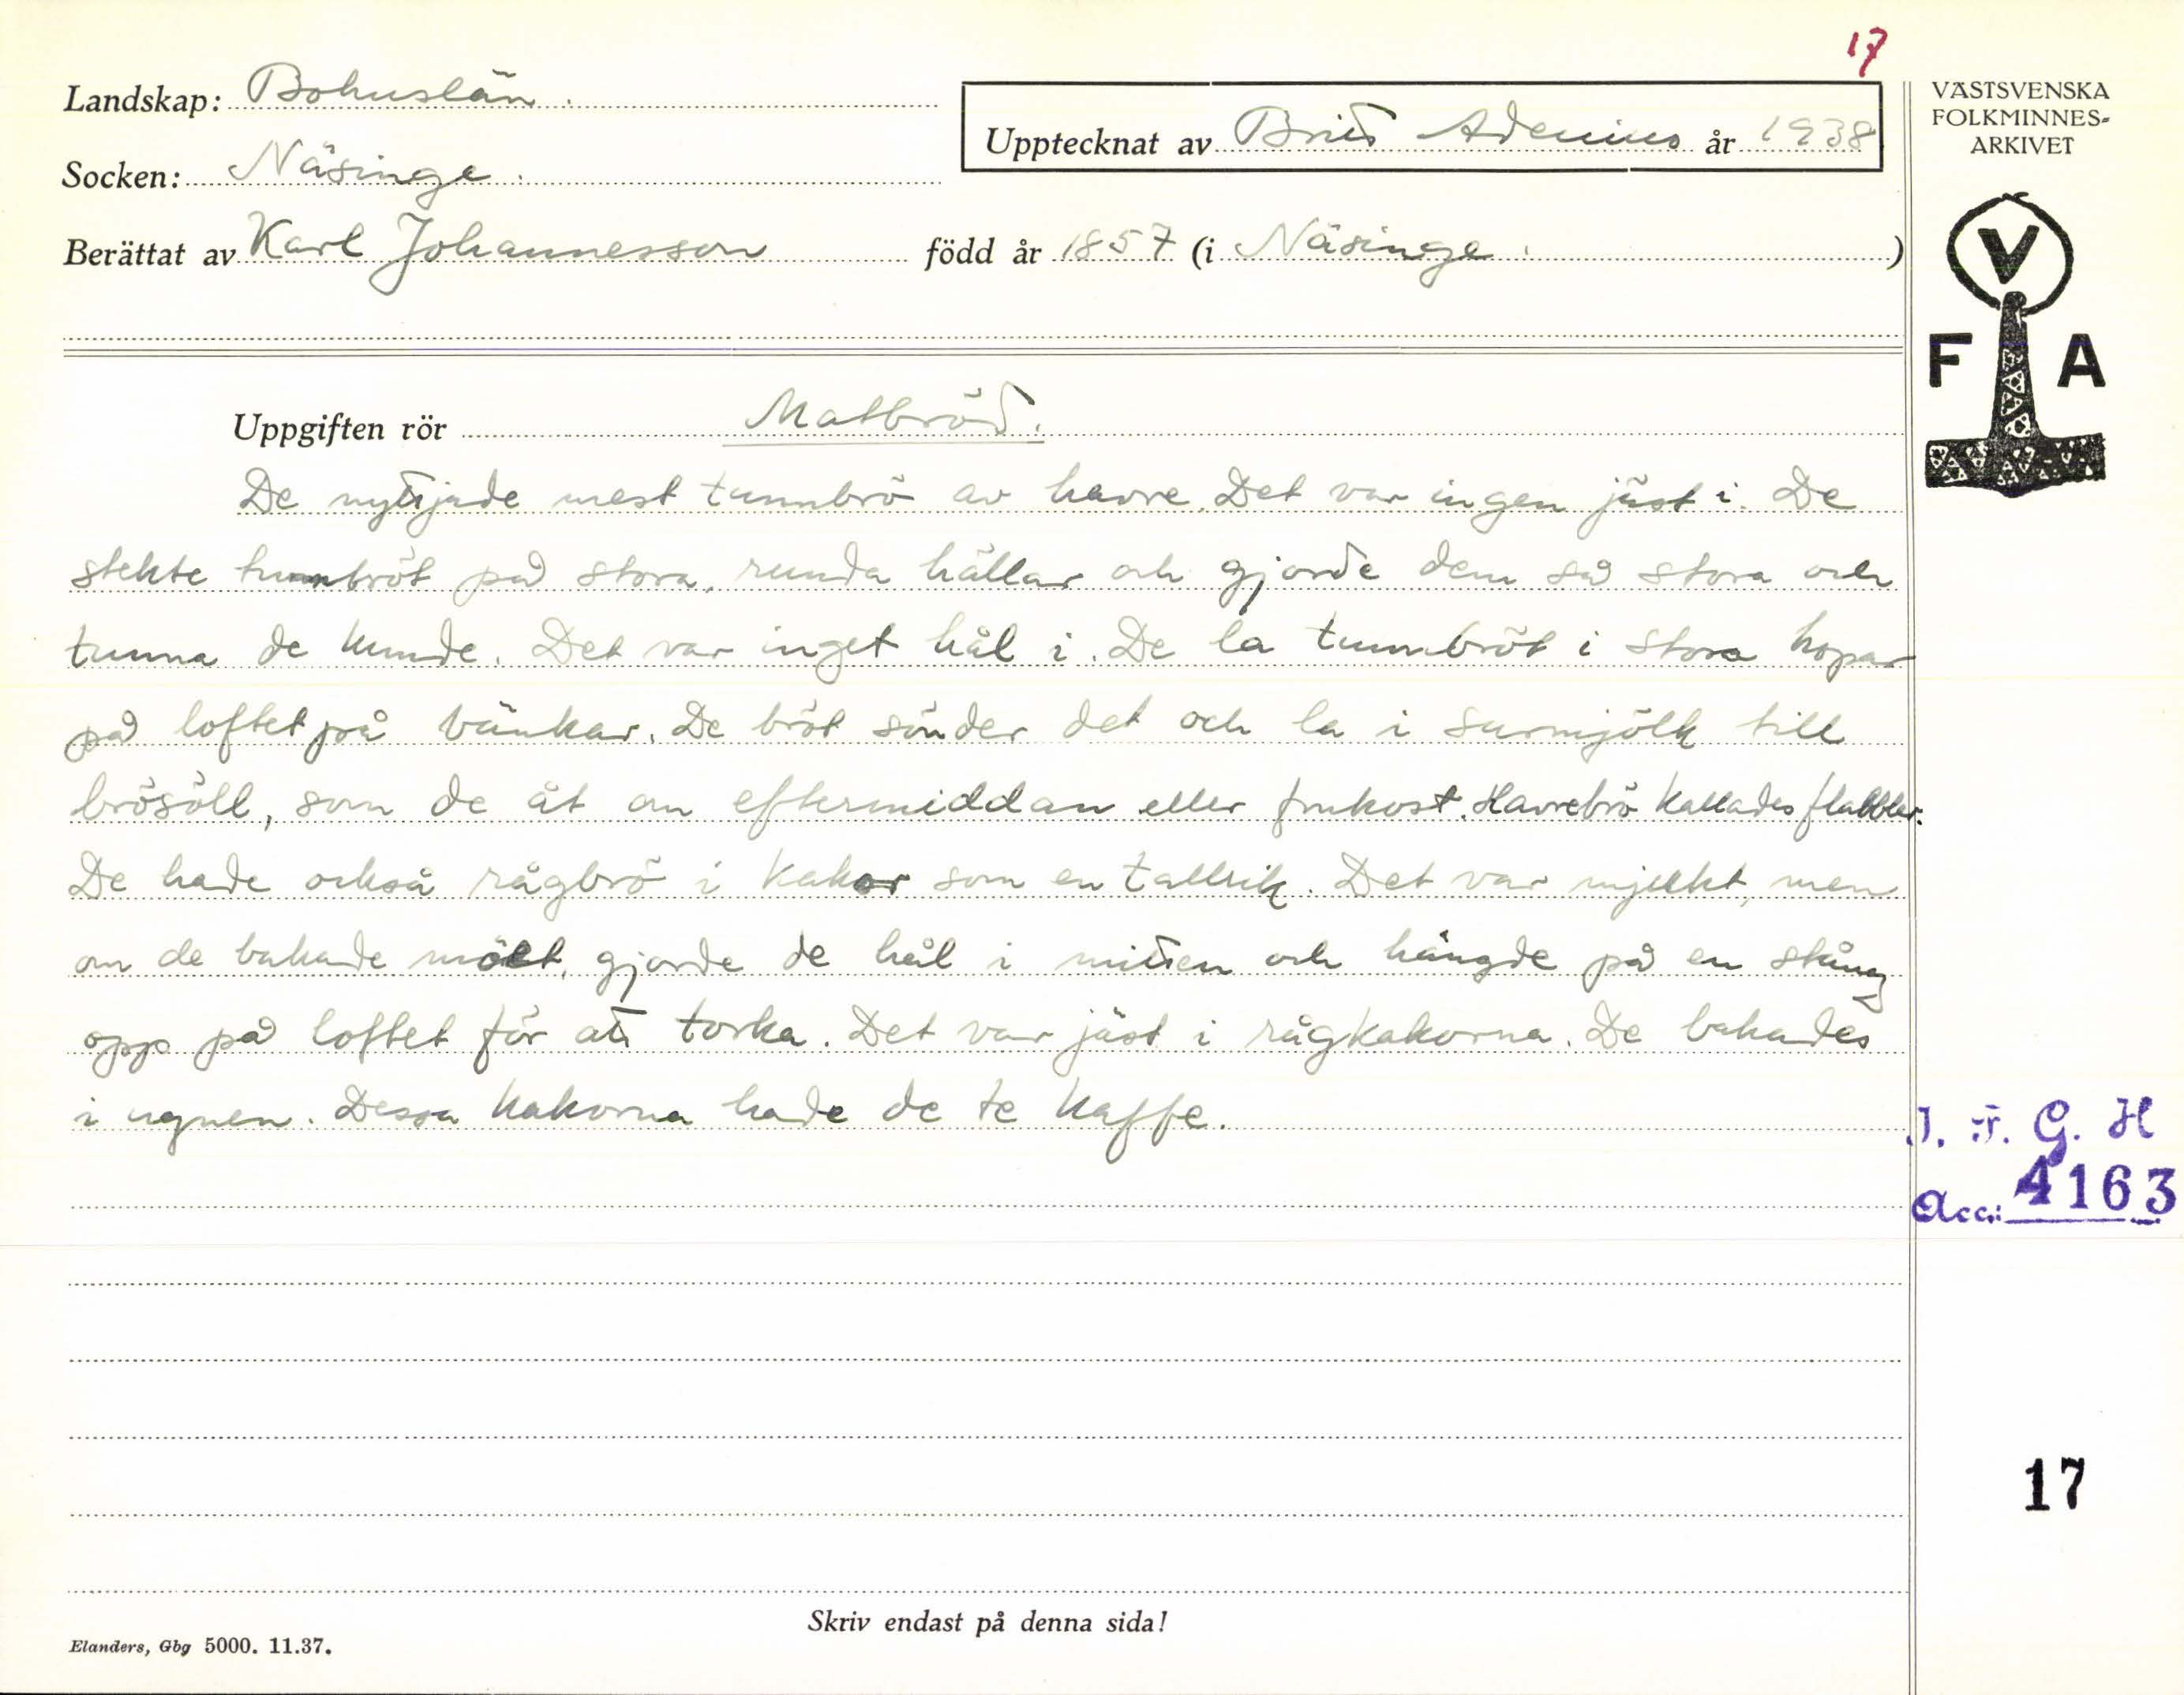 17
Landskap: Bohuslän.
Upptecknat av Britt Adenius år 1938
Socken: Näsinge.
Berättat av Karl Johannesson född år 1857 (i Näsinge.)
VÄSTSVENSKA
FOLKMINNES-
ARKIVET
V
F A
Uppgiften rör Matbröd.
De nyttjade mest tunnbrö av havre. Det var ingen jäst i. De
stekte tunnbröt på stora, runda hällar och gjorde dem så stora och
tunna de kunde. Det var inget hål i. De la tunnbröt i stora hopar
på loftet på bänkar. De bröt sönder det och la i surmjölk till
brösöll, som de åt om eftermiddan eller frukost. Havrebrö kallades flabbler.
De hade också rågbrö i kakor som en tallrik. Det var mjukt, men
om de bakade möet, gjorde de hål i mitten och hängde på en stång
opp på loftet för att torka. Det var jäst i rågkakorna. De bakades
i ugnen. Dessa kakorna hade de te kaffe.
I. F. G. H
Acc.: 4163
17
Skriv endast på denna sida!
Elanders, Gbg 5000. 11.37.